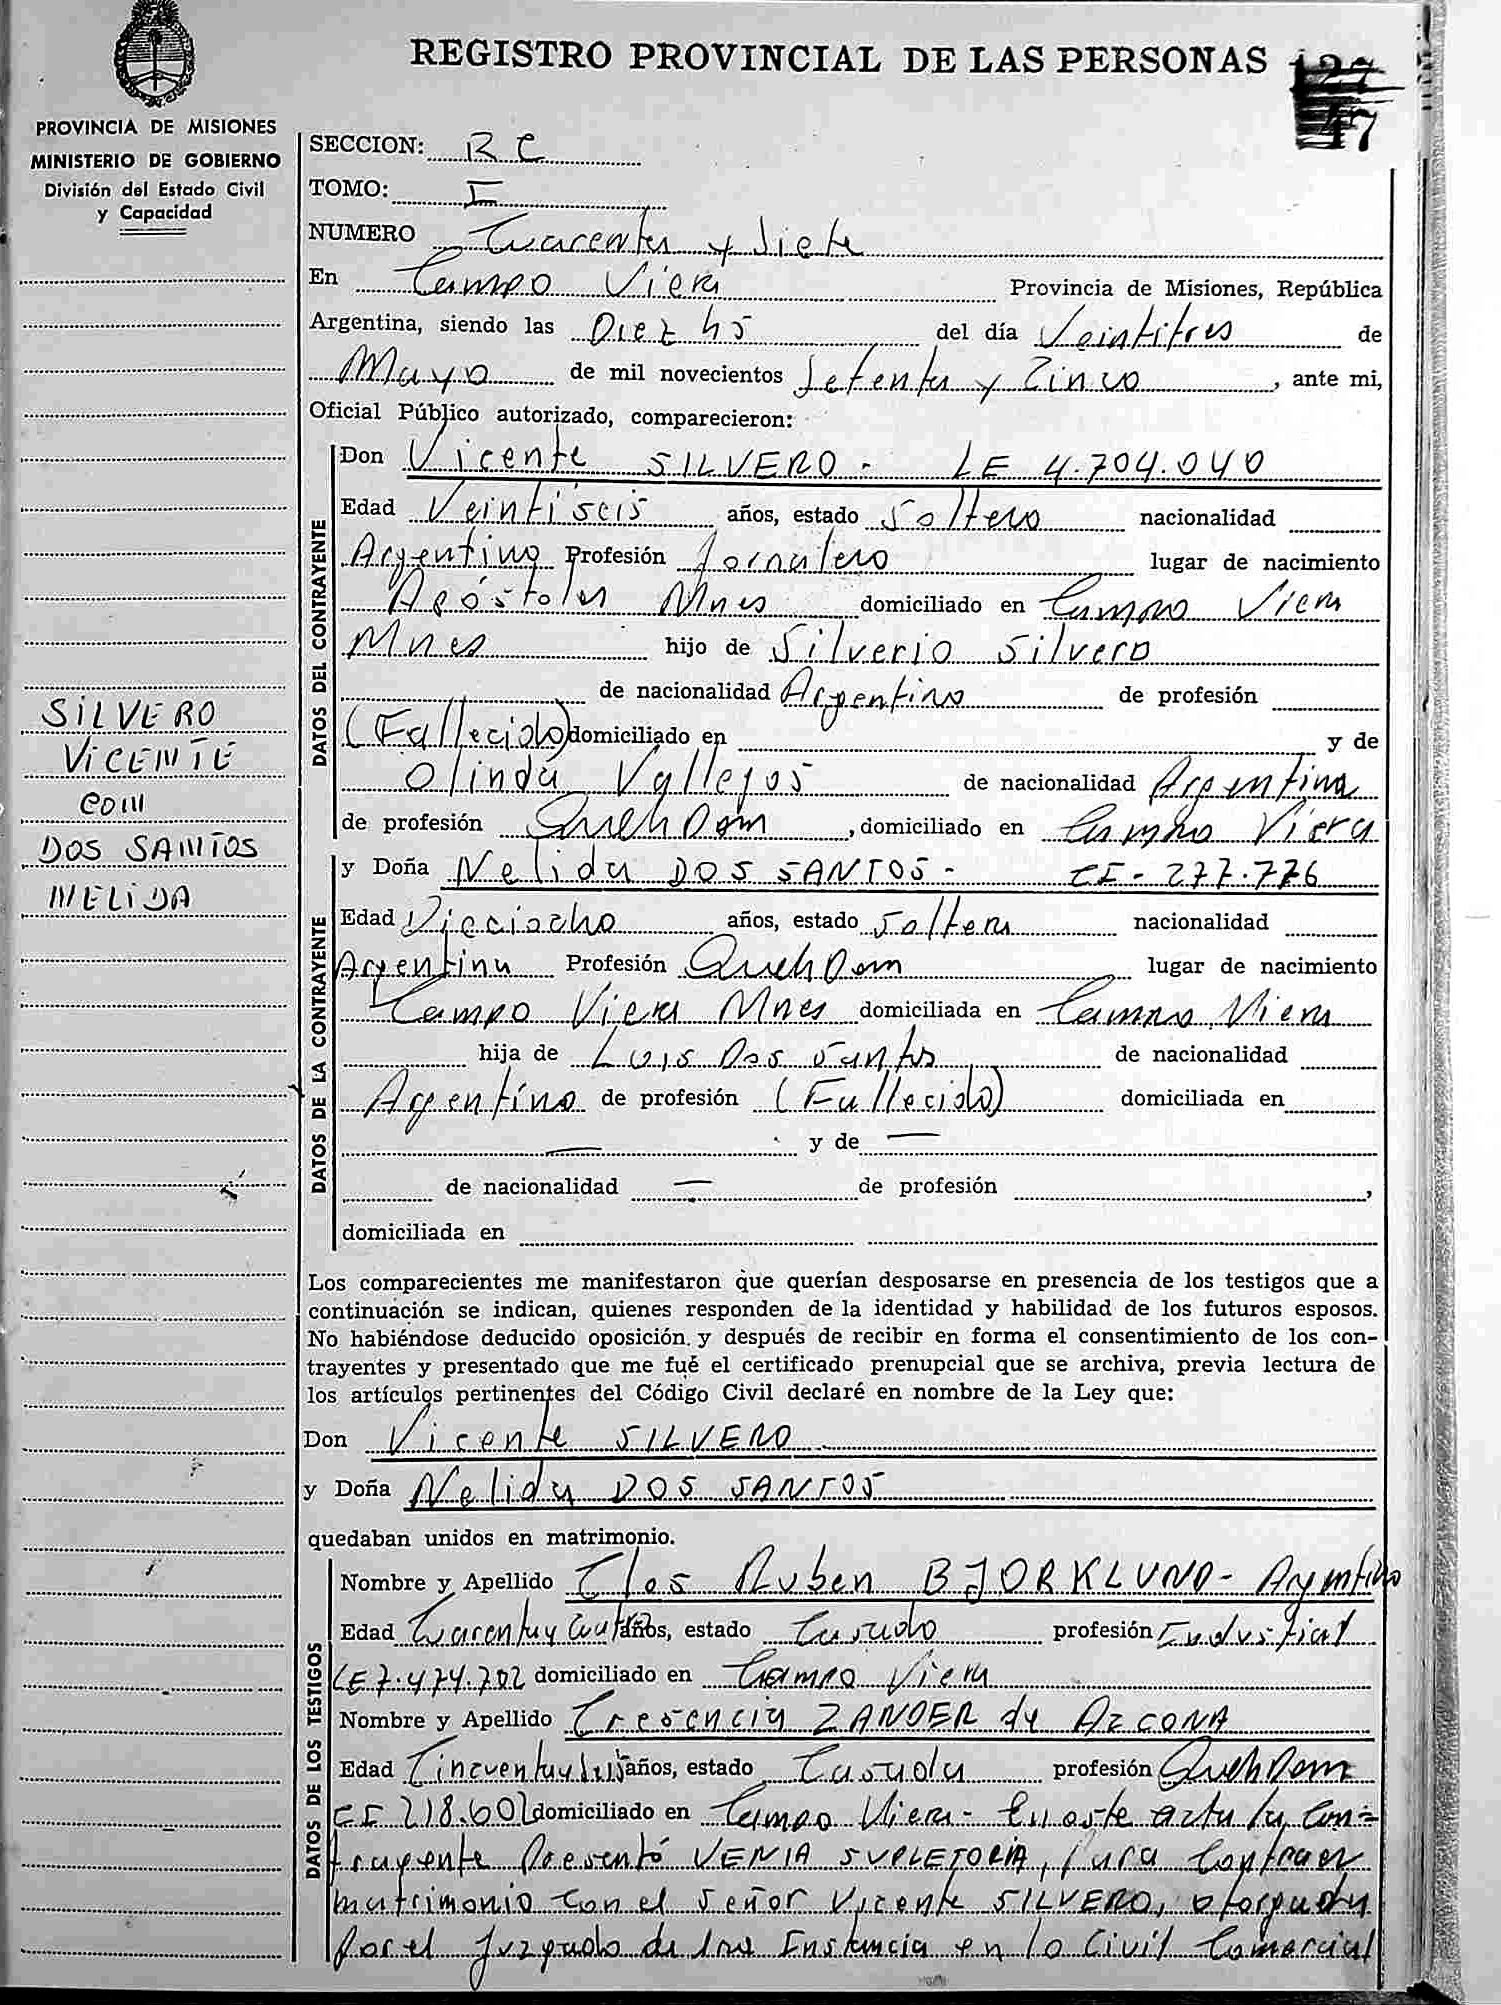 REGISTRO PROVINCIAL DE LAS PERSONAS
47
PROVINCIA DE MISIONES
MINISTERIO DE GOBIERNO
División del Estado Civil
y Capacidad
SECCION: RC
TOMO: I
NUMERO Cuarenta y Siete
En Campo Viera Provincia de Misiones, República
Argentina, siendo las Diez hs del día Veintitres de
Mayo de mil novecientos Setenta y Cinco, ante mi,
Oficial Público autorizado, comparecieron:
DATOS DEL CONTRAYENTE
Don Vicente SILVERO - LE 4.704.040
Edad Veintiseis años, estado Soltero nacionalidad
Argentino Profesión Jornalero lugar de nacimiento
Apóstoles Mnes domiciliado en Campo Viera
Mnes hijo de Silverio Silvero
de nacionalidad Argentino de profesión
(Fallecido) domiciliado en y de
Olinda Vallejos de nacionalidad Argentina
de profesión QuehDom, domiciliado en Campo Viera
SILVERO
VICENTE
CON
DOS SANTOS
NELIDA
DATOS DE LA CONTRAYENTE
y Doña Nelida DOS SANTOS - CI - 277.776
Edad Dieciocho años, estado Soltera nacionalidad
Argentina Profesión QuehDom lugar de nacimiento
Campo Viera Mnes domiciliada en Campo Viera
hija de Luis Dos Santos de nacionalidad
Argentino de profesión (Fallecido) domiciliada en
— y de —
de nacionalidad — de profesión ,
domiciliada en
Los comparecientes me manifestaron que querían desposarse en presencia de los testigos que a
continuación se indican, quienes responden de la identidad y habilidad de los futuros esposos.
No habiéndose deducido oposición y después de recibir en forma el consentimiento de los con-
trayentes y presentado que me fué el certificado prenupcial que se archiva, previa lectura de
los artículos pertinentes del Código Civil declaré en nombre de la Ley que:
Don Vicente SILVERO
y Doña Nelida DOS SANTOS
quedaban unidos en matrimonio.
DATOS DE LOS TESTIGOS
Nombre y Apellido Clos Ruben BJORKLUND - Argentino
Edad Cuarentay años, estado Casado profesión Industrial
LE 7.474.702 domiciliado en Campo Viera
Nombre y Apellido Cresencia ZANDER de AZCONA
Edad años, estado Casada profesión QuehDom
CI 218.602 domiciliado en Campo Viera - En este acto la con-
trayente Presentó VENIA SUPLETORIA, para Contraer
matrimonio con el señor Vicente SILVERO, otorgada
por el Juzgado de 1ra Instancia en lo Civil Comercial